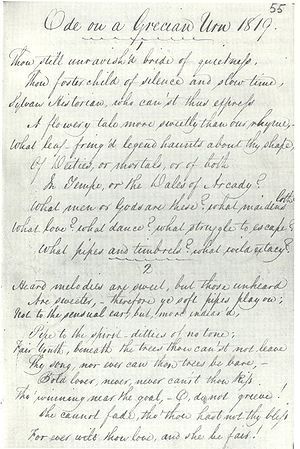 55
Ode on a Grecian Urn 1819.
Thou still unravish'd bride of quietness,
Thou foster child of silence and slow time,
Sylvan Historian, who can'st thus express
A flowery tale more sweetly than our rhyme,—
What leaf-fring'd legend haunts about thy shape
Of Deities, or mortals, or of both
In Tempe, or the Dales of Arcady?
What men or Gods are these? what maidens loth?
What love? what dance? what struggle to escape?
What pipes and timbrels? what wild extacy?
2
Heard melodies are sweet, but those unheard
Are sweeter,— therefore ye soft pipes play on;
Not to the sensual ear, but, more endear'd,
Pipe to the spirit—ditties of no tone;
Fair Youth, beneath the trees thou can'st not leave
Thy song, nor ever can those trees be bare,—
Bold lover, never, never can'st thou kiss
Tho' winning near the goal,— O, do not grieve!
She cannot fade, tho' thou hast not thy bliss
For ever wilt thou love, and she be fair!